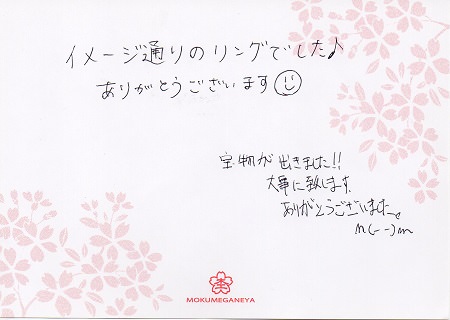 イメージ通りのリングでした♪
ありがとうございます☺
宝物が出きました!!
大事に致します。
ありがとうございました。
m(--)m
MOKUMEGANEYA